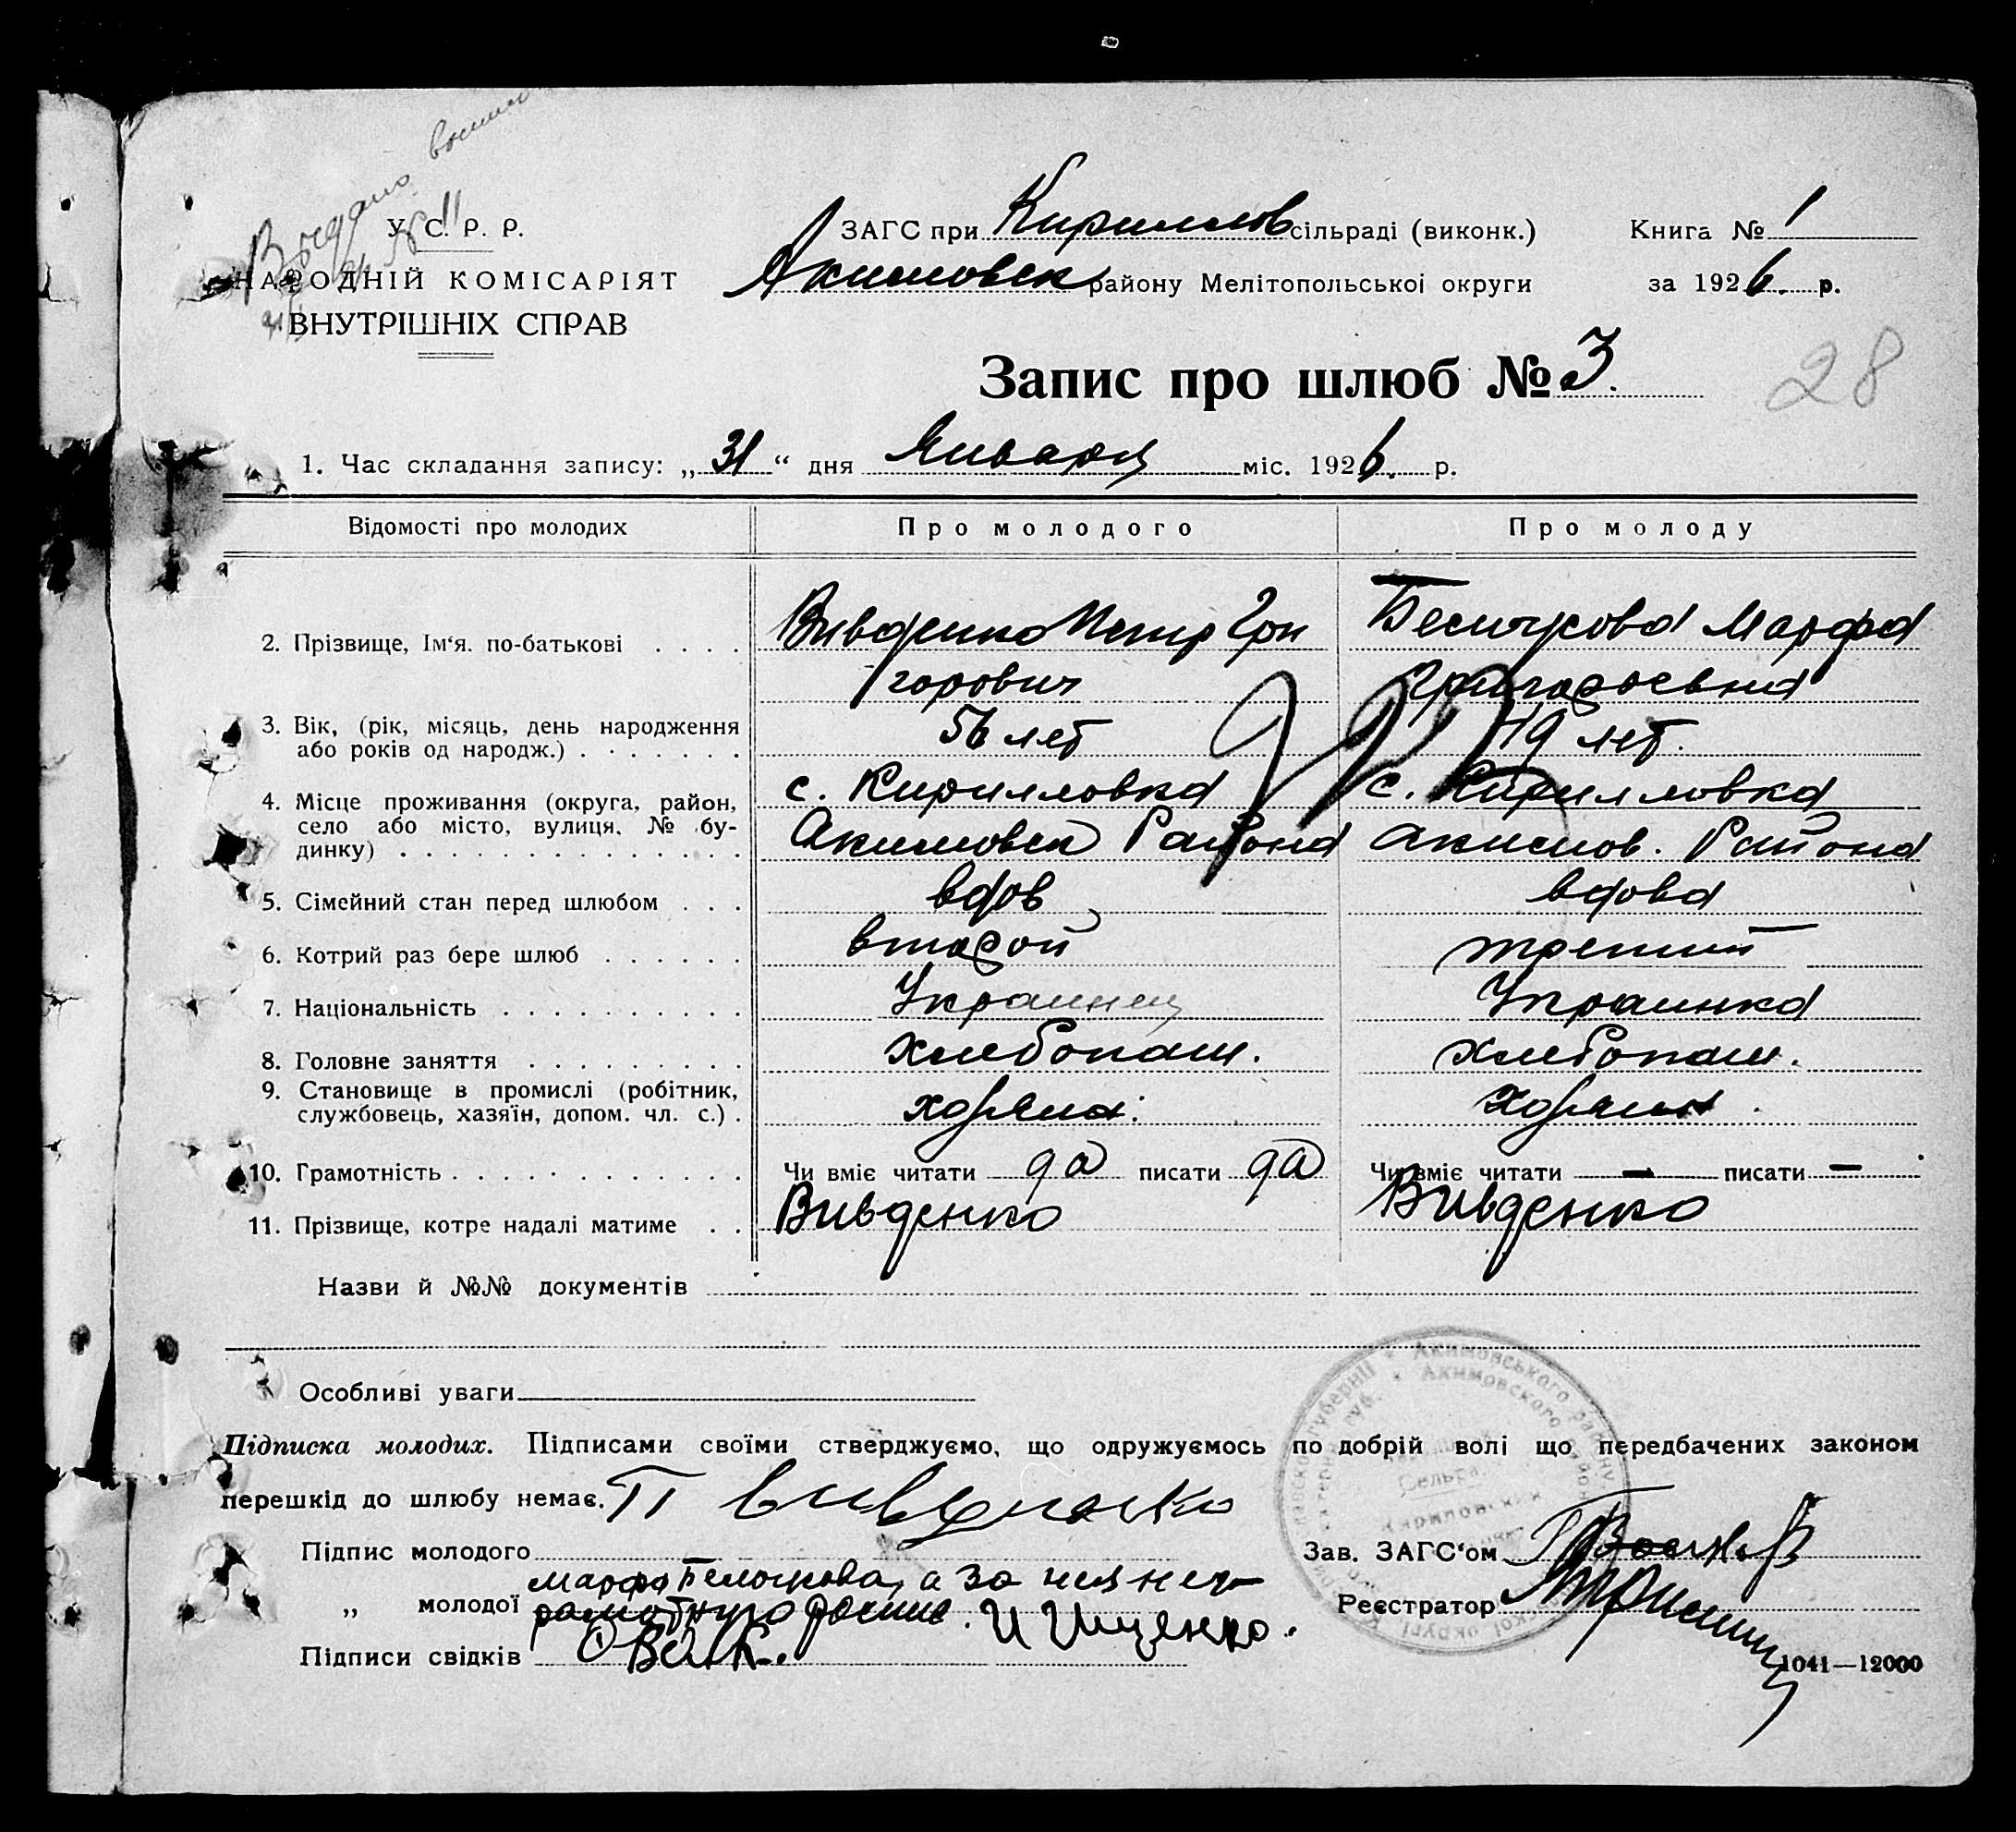 Выдано
У. С. Р. Р.
НАРОДНІЙ КОМІСАРІЯТ
ВНУТРІШНІХ СПРАВ
ЗАГС при Кириллов сільраді (виконк.)
Акимовск району Мелітопольської округи
Книга № 1
за 1926. р.
Запис про шлюб № 3.
28
1. Час складання запису: „31“ дня Января міс. 1926. р.
Відомості про молодих Про молодого Про молоду
2. Прізвище, Ім'я. по-батькові . . . . Вивденко Петр Гри Марфа
горович Григорьевна
3. Вік, (рік, місяць, день народження
або років од народж.) . . . . . . . 56 лет 49 лет.
4. Місце проживання (округа, район, с. Кирилловка с. Кирилловка
село або місто, вулиця, № бу-
динку) . . . . . . . . . . . . . . Акимовск Района Акимов. Района
5. Сімейний стан перед шлюбом . . . вдов вдова
6. Котрий раз бере шлюб . . . . . . второй третий
7. Національність . . . . . . . . . . Украинец Украинка
8. Головне заняття . . . . . . . . . хлебопаш. хлебопаш.
9. Становище в промислі (робітник,
службовець, хазяїн, допом. чл. с.) .
10. Грамотність . . . . . . . . . . . . Чи вміє читати да писати да Чи вміє читати — писати —
11. Прізвище, котре надалі матиме . . Вивденко Вивденко
Назви й №№ документів
Особливі уваги
Підписка молодих. Підписами своїми стверджуємо, що одружуємось по добрій волі що передбачених законом
перешкід до шлюбу немає. П Вивденко
Підпис молодого
Зав. ЗАГС'ом
Марфа а за нея нег-
„ молодої рамотную роспис. И Ищенко.
Реєстратор
Підписи свідків
1041—12000